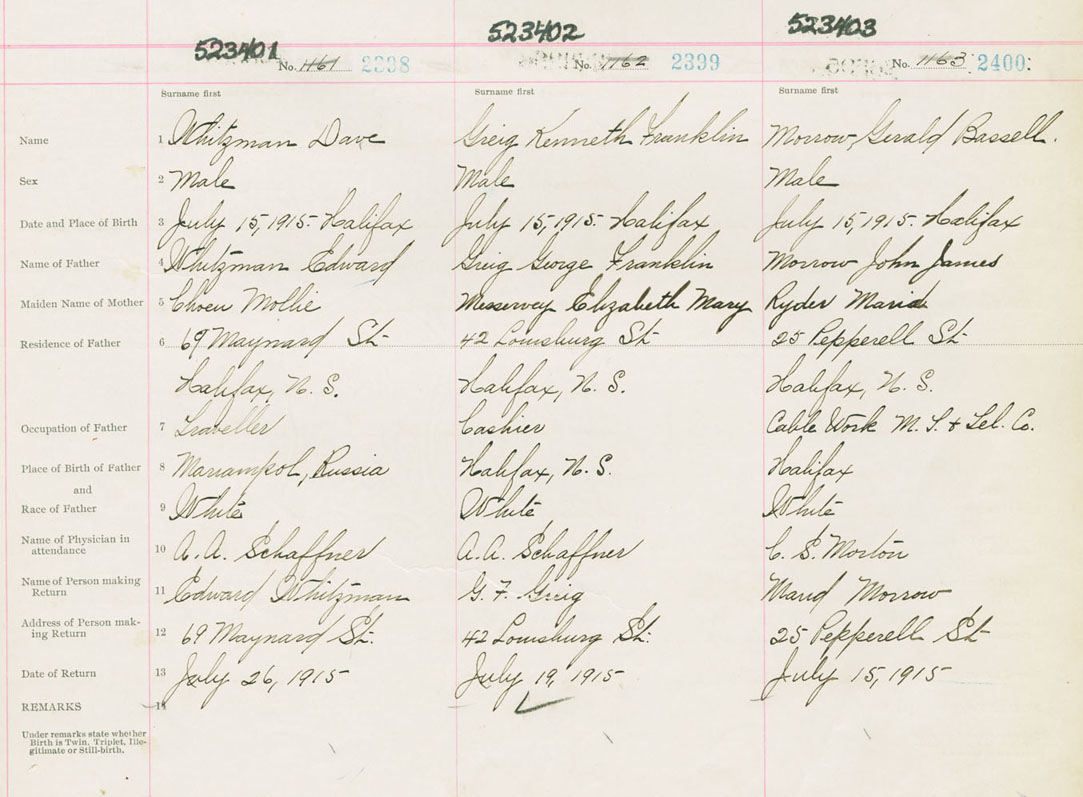 523401 523402 523403
No. 1161 2398 No. 1162 2399 No. 1163 2400
Surname first Surname first Surname first
Name 1 Whitzman Dave Greig Kenneth Franklin Morrow, Gerald Bassell.
Sex 2 Male Male Male
Date and Place of Birth 3 July 15, 1915. Halifax July 15, 1915. Halifax July 15, 1915. Halifax
Name of Father 4 Whitzman Edward Greig George Franklin Morrow John James
Maiden Name of Mother 5 Choen Mollie Messervey Elizabeth Mary Ryder Maud
Residence of Father 6 69 Maynard St. 42 Louisburg St. 25 Pepperell St.
Halifax, N. S. Halifax, N. S. Halifax, N. S.
Occupation of Father 7 Traveller Cashier Cable Work M. T. & Tel. Co.
Place of Birth of Father 8 Mariampol, Russia Halifax, N. S. Halifax
and
Race of Father 9 White White White
Name of Physician in
attendance 10 A. A. Schaffner A. A. Schaffner C. S. Morton
Name of Person making
Return 11 Edward Whitzman G. F. Greig Maud Morrow
Address of Person mak-
ing Return 12 69 Maynard St. 42 Louisburg St. 25 Pepperell St.
Date of Return 13 July 26, 1915 July 19, 1915 July 15, 1915
REMARKS 14
Under remarks state whether
Birth is Twin, Triplet, Ille-
gitimate or Still-birth.